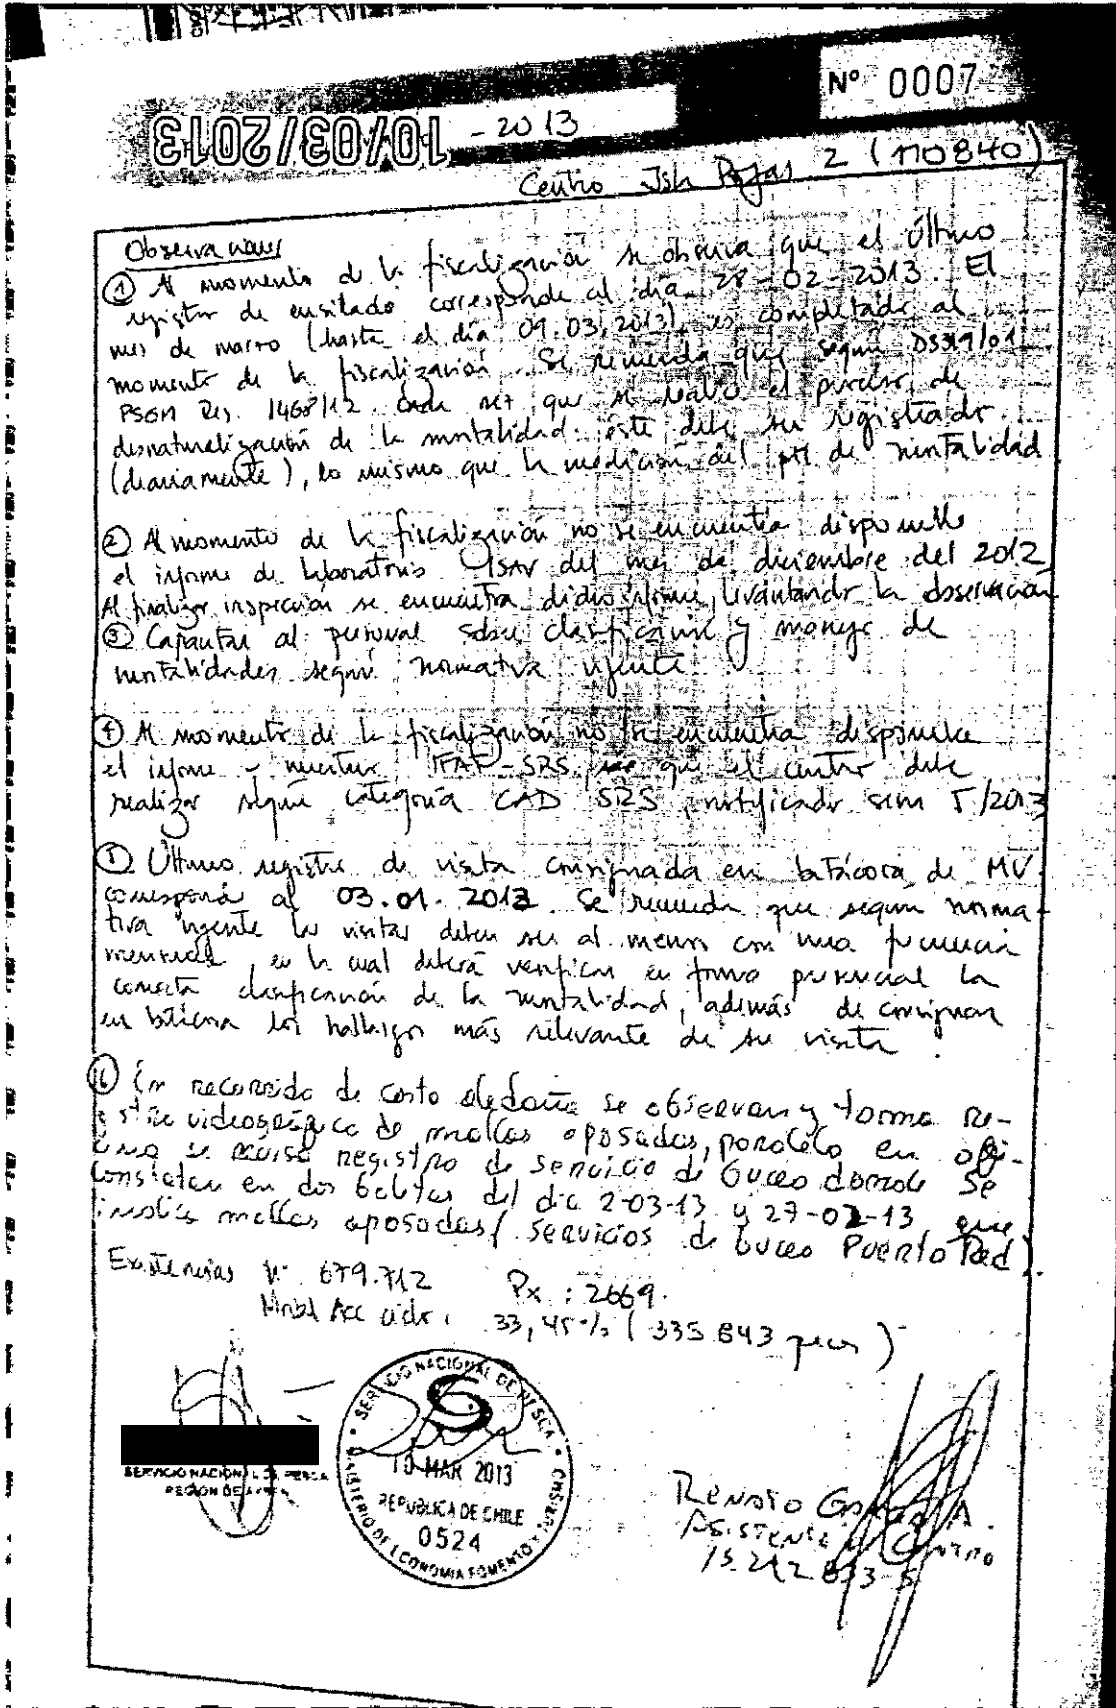 Nº 0007
10/03/2013 - 2013
Centro Isla Rojas 2 (110840)
Observaciones
① Al momento de la fiscalización se observa que el último
registro de ensilado corresponde al día 28-02-2013. El
mes de marzo (hasta el día 09.03.2013) es completado al
momento de la fiscalización. Se recuerda que según DS319/01
PSGM Res. 1468/12 cada vez que se realice el proceso de
desnaturalización de la mortalidad este debe ser registrado
(diariamente), lo mismo que la medición del pH de mortalidad
② Al momento de la fiscalización no se encuentra disponible
el informe de laboratorio ISAV del mes de diciembre del 2012
Al finalizar inspección se encuentra dicho informe, levantando la observación
③ Capacitar al personal sobre clasificación y manejo de
mortalidades según normativa vigente
④ Al momento de la fiscalización no se encuentra disponible
el informe muestreo IFAT-SRS que el centro debe
realizar según categoría CAD SRS, notificado sem 5/2013
⑤ Último registro de visita consignada en bitácora de MV
corresponde al 03.01.2013. Se recuerda que según norma-
tiva vigente las visitas deben ser al menos con una frecuencia
mensual, en la cual deberá verificar en forma presencial la
correcta clasificación de la mortalidad, además de consignar
en bitácora los hallazgos más relevante de su visita.
⑥ En recorrido de costa aledaña se observan y toma re-
gistro videográfico de mallas aposadas, paralelo en ofi-
cina se revisa registro de servicio de buceo donde se
constatan en dos boletas del día 2-03-13 y 27-02-13 que
indica mallas aposadas (servicios de buceo Puerto Red).
Existencias Nº 679.712 Px : 2669.
Mortal Acc ciclo: 33,45% (335.843 peces)
SERVICIO NACIONAL DE PESCA
REGIÓN DE AYSEN
SERVICIO NACIONAL DE PESCA
10 MAR 2013
REPUBLICA DE CHILE
0524
MINISTERIO DE ECONOMIA FOMENTO Y TURISMO
RENATO A.
ASISTENTE CENTRO